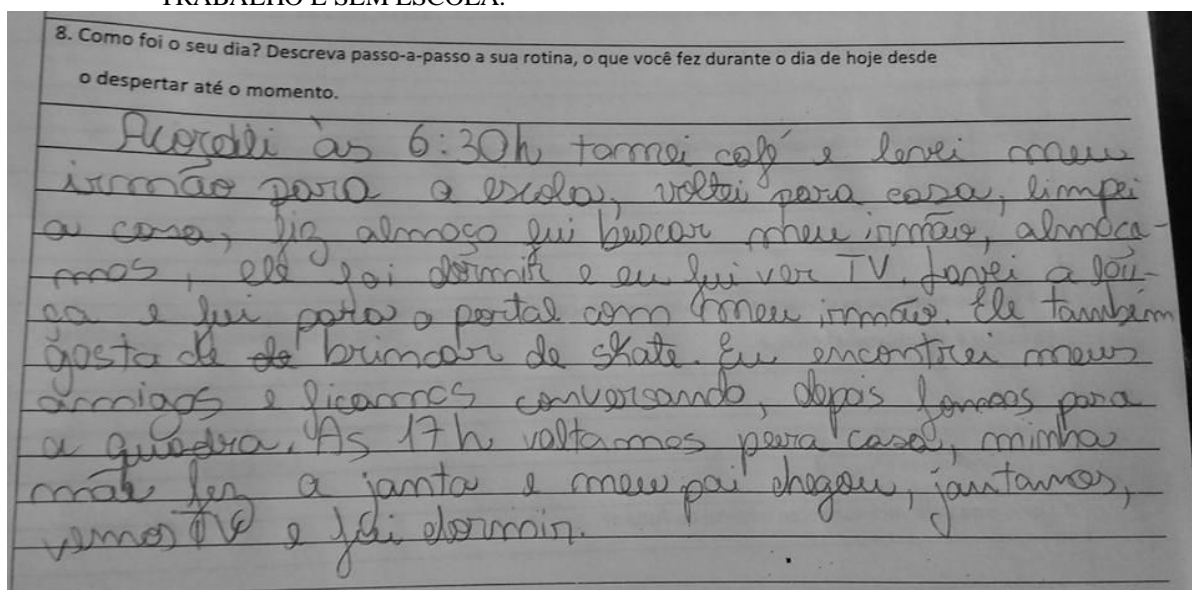 TRABALHO E SEM ESCOLA.
8. Como foi o seu dia? Descreva passo-a-passo a sua rotina, o que você fez durante o dia de hoje desde
o despertar até o momento.
Acordei às 6:30h tomei café e levei meu
irmão para a escola, voltei para casa, limpei
a casa, fiz almoço fui buscar meu irmão, almoça-
mos, ele foi dormir e eu fui ver TV. Lavei a lou-
ça e fui para o portal com meu irmão. Ele também
gosta de de brincar de skate. Eu encontrei meus
amigos e ficamos conversando, depois fomos para
a quadra. As 17h voltamos para casa, minha
mãe fez a janta e meu pai chegou, jantamos,
vemos TV e foi dormir.